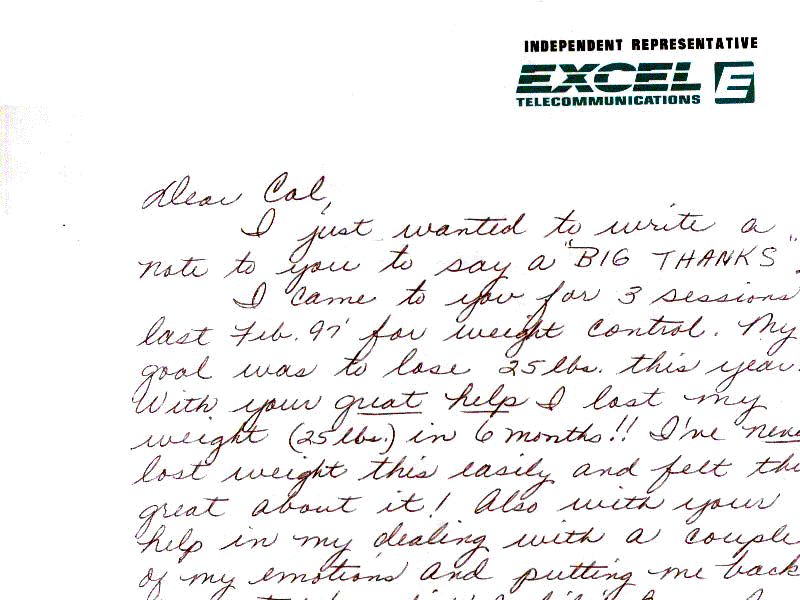 INDEPENDENT REPRESENTATIVE
EXCEL E
TELECOMMUNICATIONS
Dear Cal,
I just wanted to write a
note to you to say a "BIG THANKS".
I came to you for 3 sessions
last Feb. 97' for weight control. My
goal was to lose 25 lbs. this year.
With your great help I lost my
weight (25 lbs.) in 6 months!! I've neve
lost weight this easily and felt thi
great about it! Also with your
help in my dealing with a couple
of my emotions and putting me back